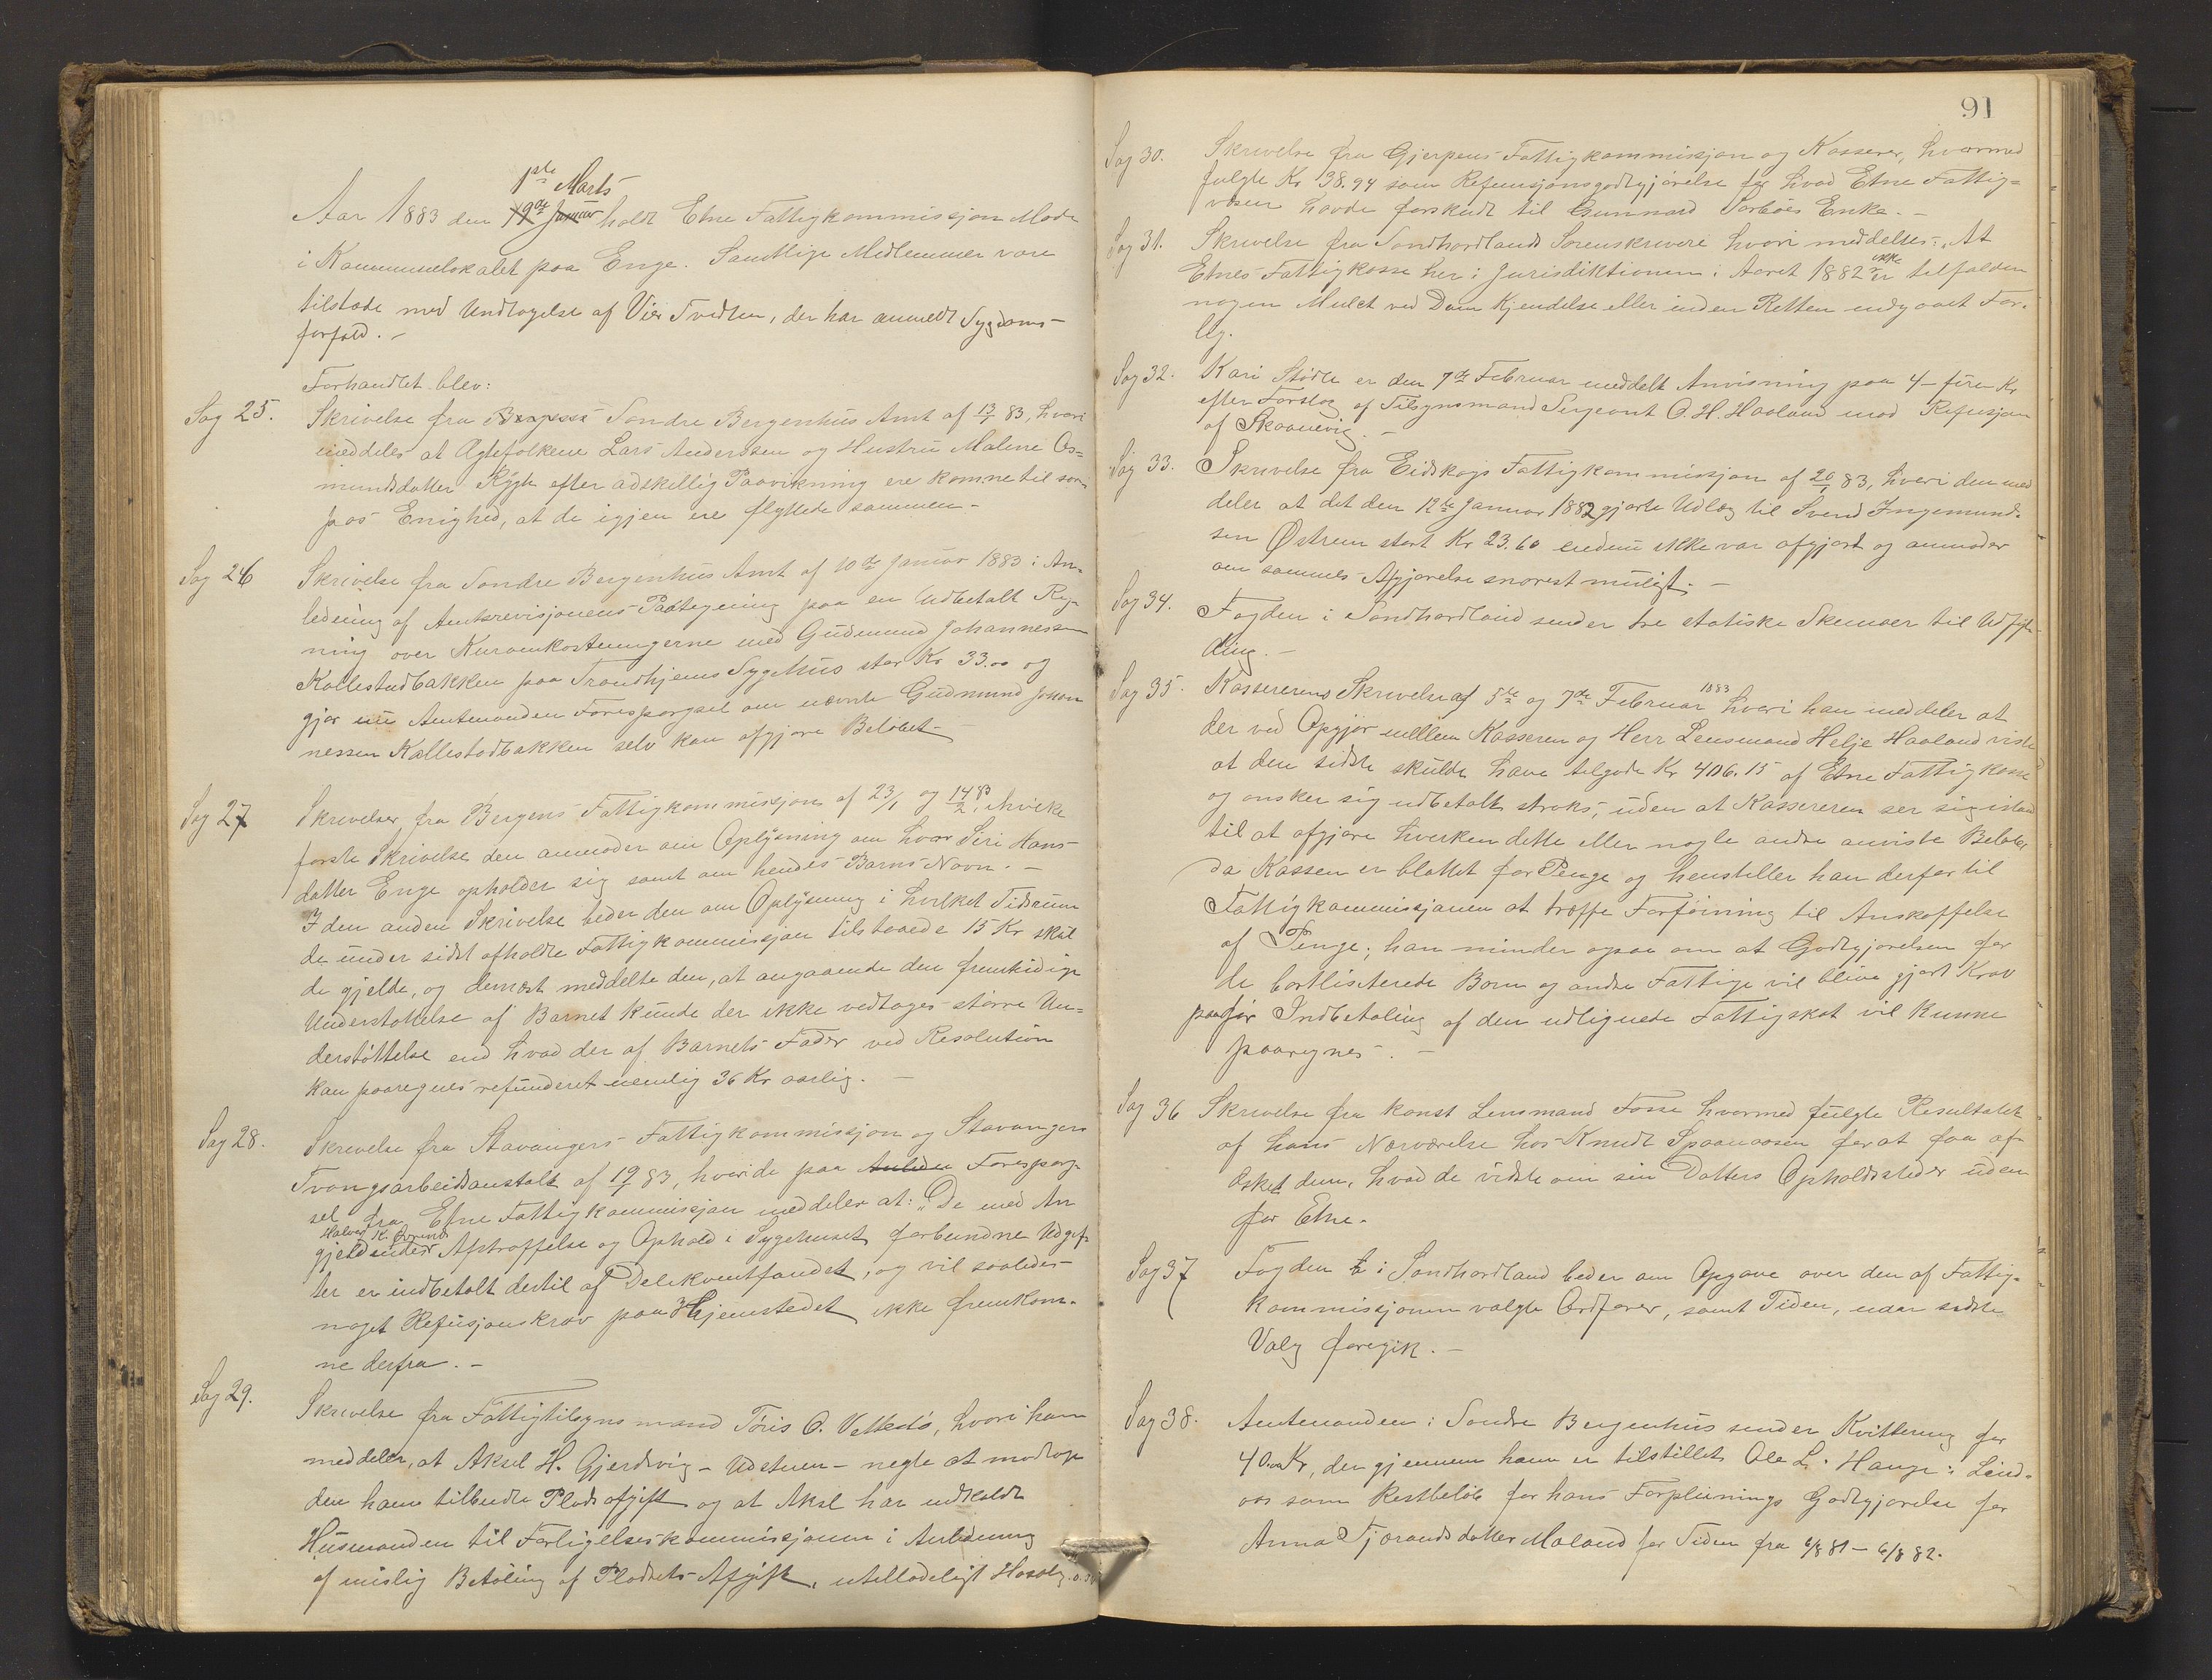 1ste Marts
Aar 1883 den 19de Januar holdt Etne Fattigkommissjon Møde
i Kommunelokalet paa Enge. Samtlige Medlemmer vare
tilstæde med Undtagelse af Vier Tvedten, der har anmeldt Sygdoms-
forfald. -
Forhandlet blev:
Sag 25. Skrivelse fra Søndre Bergenhus Amt af 83, hvori
meddeles at Ægtefolkene Lars Anderssen og Hustru Malene Os=
mundsdatter Rygh efter adskellig Paavirkning ere komne til saa-
pas Enighed, at de igjen ere flyttede sammen -
Sag 26 Skrivelse fra Søndre Bergenhus Amt af 10de Januar 1883 i An-
ledning af Amtsrevisjonens Paategning paa en Udbetalt Reg-
ning over Kuromkostningerne med Gudmund Johannessen
Kallestadbakken paa Trondhjems Sygehus stor Kr 33.00 og
gjør nu Amtmanden Forespørgsel om nævnte Gudmund Johan
nessen Kallestadbakken selv kan afgjøre Beløbet -
Sag 27 Skrivelser fra Bergens Fattigkommissjon af 23/1 og 14/2 83, i hvilke
første Skrivelse den anmoder om Oplysning om hvor Siri Hans-
datter Enge opholder sig samt om hendes Barns Navn. -
I den anden Skrivelse beder den om Oplysning i hvilket Tidsrum
de under sidst afholdte Fattigkommissjon tilstaaede 15 Kr skul
de gjelde, og dernæst meddelte den, at angaaende den fremtidige
Understøttelse af Barnet kunde der ikke vedtages større Un=
derstøttelse end hvad der af Barnets Fader ved Resolution
kan paaregnes refunderet nemlig 36 Kr aarlig. -
Sag 28. Skrivelse fra Stavangers Fattigkommissjon og Stavangers
Tvangsarbeidsanstalt af 83, hvori de paa Forespørg-
sel fra Etne Fattigkommissjon meddeler at: „De med An
Halvor K. Grinde
gjeldendes Afstraffelse og Ophold i Sygehuset forbundne Udgif-
ter er indbetalt dertil af Delikventfondet, og vil saaledes
noget Refusjonskrav paa Hjemstedet ikke fremkom-
me derfra. -
Sag 29. Skrivelse fra Fattigtilsynsmand Tøris O. Vettestø, hvori han
meddeler, at Aksel H. Gjerdevig - Udstuen - negte at modtage
den ham tilbudte Pladsafgift og at Aksel har indkaldt
Husmanden til Forligelseskommissjonen i Anledning
af mislig Betaling af Pladsets Afgift, utilladeligt
91
Sag 30. Skrivelse fra Gjerpens Fattigkommissjon og Kasserer, hvormed
fulgte Kr 38.94 som Refusjonsgodtgjørelse for hvad Etne Fattig=
væsen havde forskudt til Gunnard Sørbøes Enke. -
Sag 31. Skrivelse fra Søndhordlands Sorenskriveri hvori meddeles: „At
Etnes Fattigkasse her i Jurisdiktionen i Aaret 1882 ikke er tilfalden
nogen Mulct ved Dom Kjendelse eller inden Retten indgaaet For-
lig.
Sag 32. Kari Stødle er den 7de Februar meddelt Anvisning paa 4 - fire Kr
efter Forslag af Tilsynsmand Sergeant O. H. Haaland mod Refusjon
af Skaanevig. -
Sag 33. Skrivelse fra Eidskogs Fattigkommissjon af 20/1 83, hvori den med
deler at det den 12te Januar 1882 gjorte Udlæg til Svend Ingemund-
sen Østrem stort Kr 23.60 endnu ikke var afgjort og anmoder
om sammes Afgjørelse snarest muligt. -
Sag 34. Fogden i Søndhordland sender tre statiske Skemaer til Udfyl-
ding. -
Sag 35. Kassererens Skrivelse af 5te og 7de Februar 1883 hvori han meddeler at
der ved Opgjør mellem Kasseren og Herr Lensmand Helje Haaland viste
at den sidste skulde have tilgode Kr 406.15 af Etne Fattigkasse
og ønsker sig udbetalt straks, uden at Kassereren ser sig istand
til at afgjøre hverken dette eller nogle andre anviste Beløber
da Kassen er blottet for Penge og henstiller han derfor til
Fattigkommissjonen at træffe Forføining til Anskaffelse
af Penge; han minder ogsaa om at Godtgjørelsen for
de bortlisiterede Børn og andre Fattige vil blive gjort Krav
paa før Indbetaling af den udlignede Fattigskat vil kunne
paaregnes. -
Sag 36 Skrivelse fra konst Lensmand Fosse hvormed fulgte Resultatet
af hans Nærværelse hos Knudt Spaanaasen for at faa af-
æsket dem, hvad de vidste om sin Datters Opholdssteder uden
for Etne.
Sag 37 Fogden i Søndhordland beder om Opgave over den af Fattig-
kommissjonen valgte Ordfører, samt Tiden, naar sidste
Valg foregik. -
Sag 38. Amtmanden i Søndre Bergenhus sender Kvittering for
40.00 Kr, der gjennem ham er tilstillet Ole L. Hauge i Lind-
aas som Restbeløb for hans Forpleinings Godtgjørelse for
Anna Tjærandsdatter Maland for Tiden fra 6/8 81 - 6/8 82.